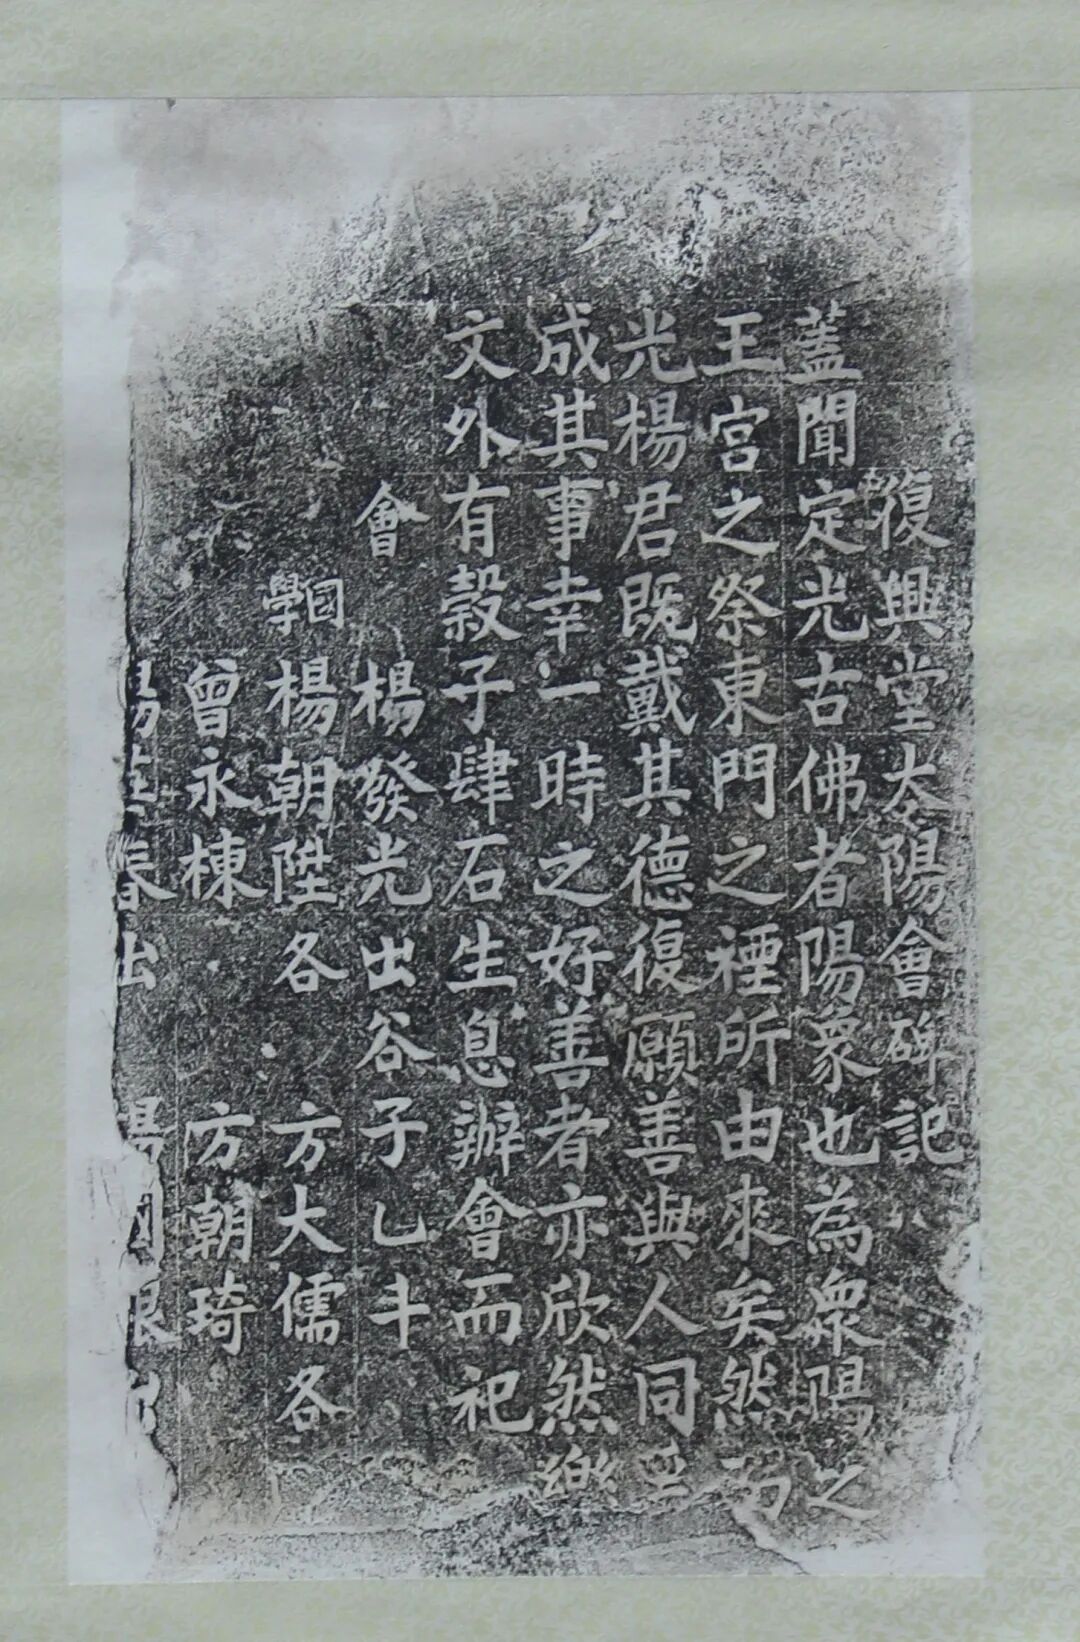 復興堂太陽會碑記
蓋聞定光古佛者陽象也為衆陽之
王宮之祭東門之禋所由來矣然
光楊君既戴其德復願善與人同
成其事幸一時之好善者亦欣然樂
文外有穀子肆石生息辦會而祀
會 楊發光出谷子乙斗
國學 楊朝陞各 方大儒各
曾永棟 方朝琦
春出 楊國